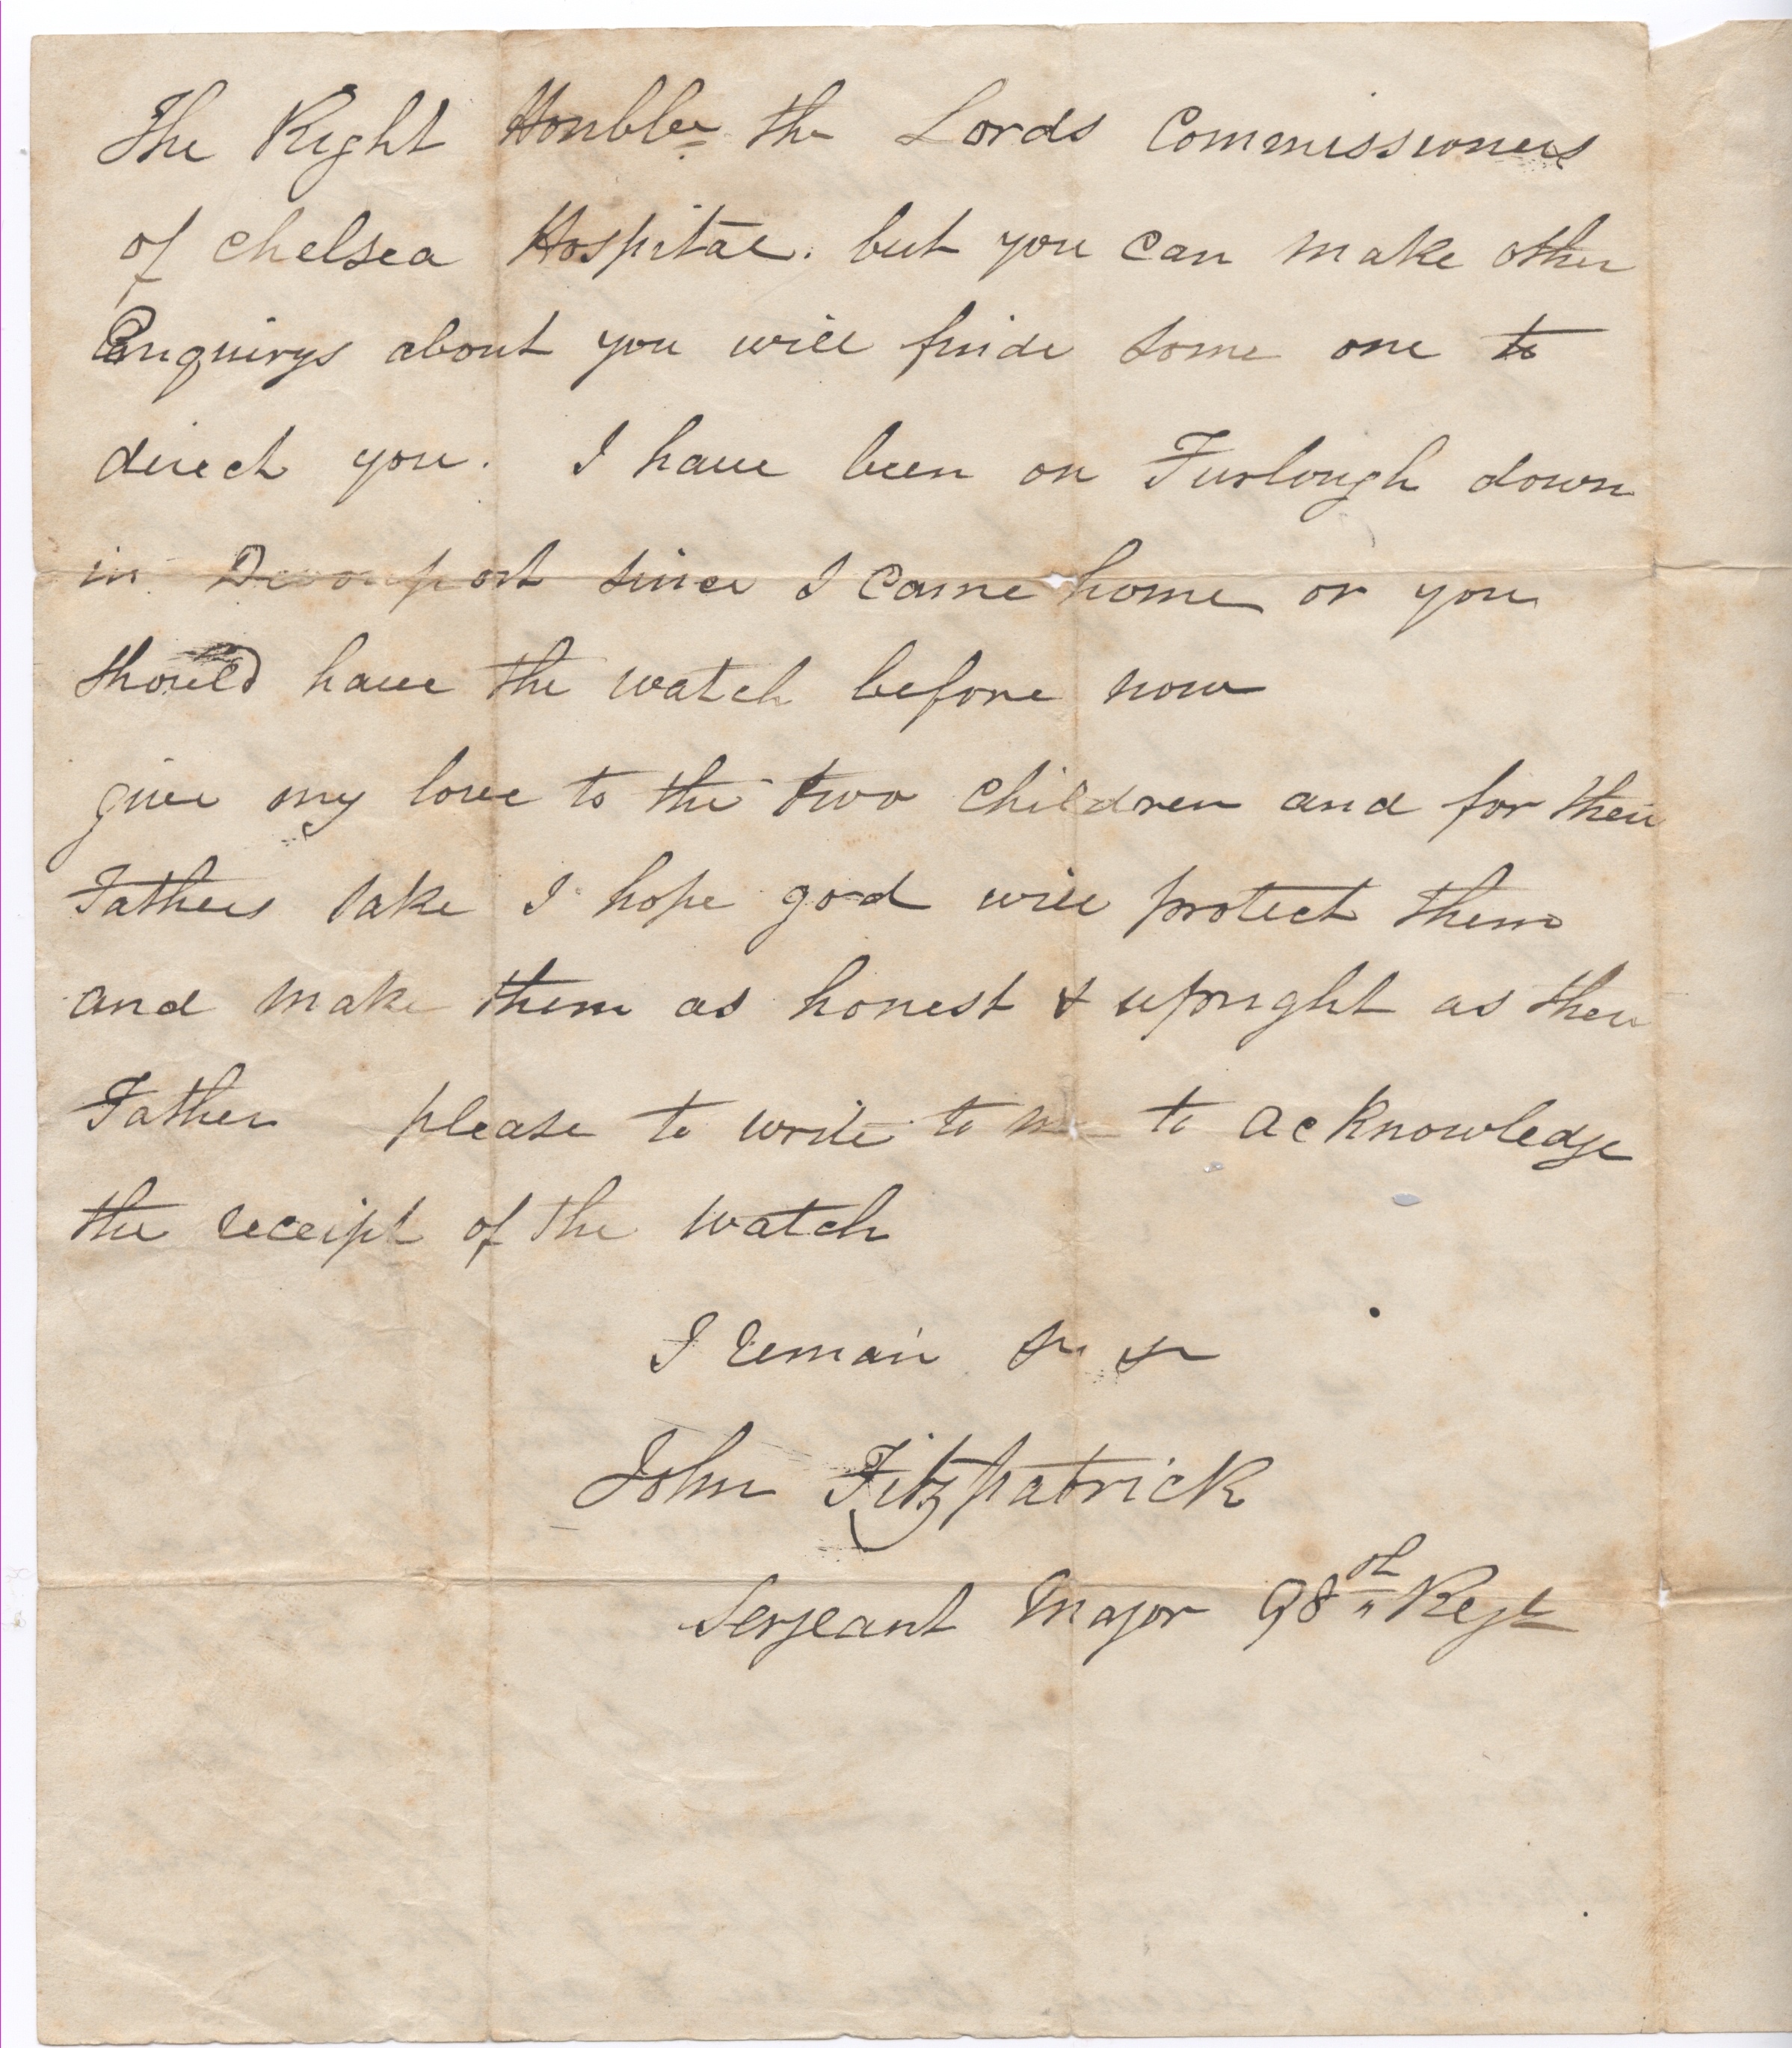 The Right Honble the Lords Commissioners
of Chelsea Hospital. but you can make other
Enquirys about you will finde some one to
direct you. I have been on Furlough down
in Devonport since I came home or you
should have the watch before now
give my love to the two children and for their
Fathers sake I hope god will protect them
and make them as honest & upright as their
Father please to write to me to acknowledge
the receipt of the watch
I remain
John Fitzpatrick
Serjeant Major 98th Regt